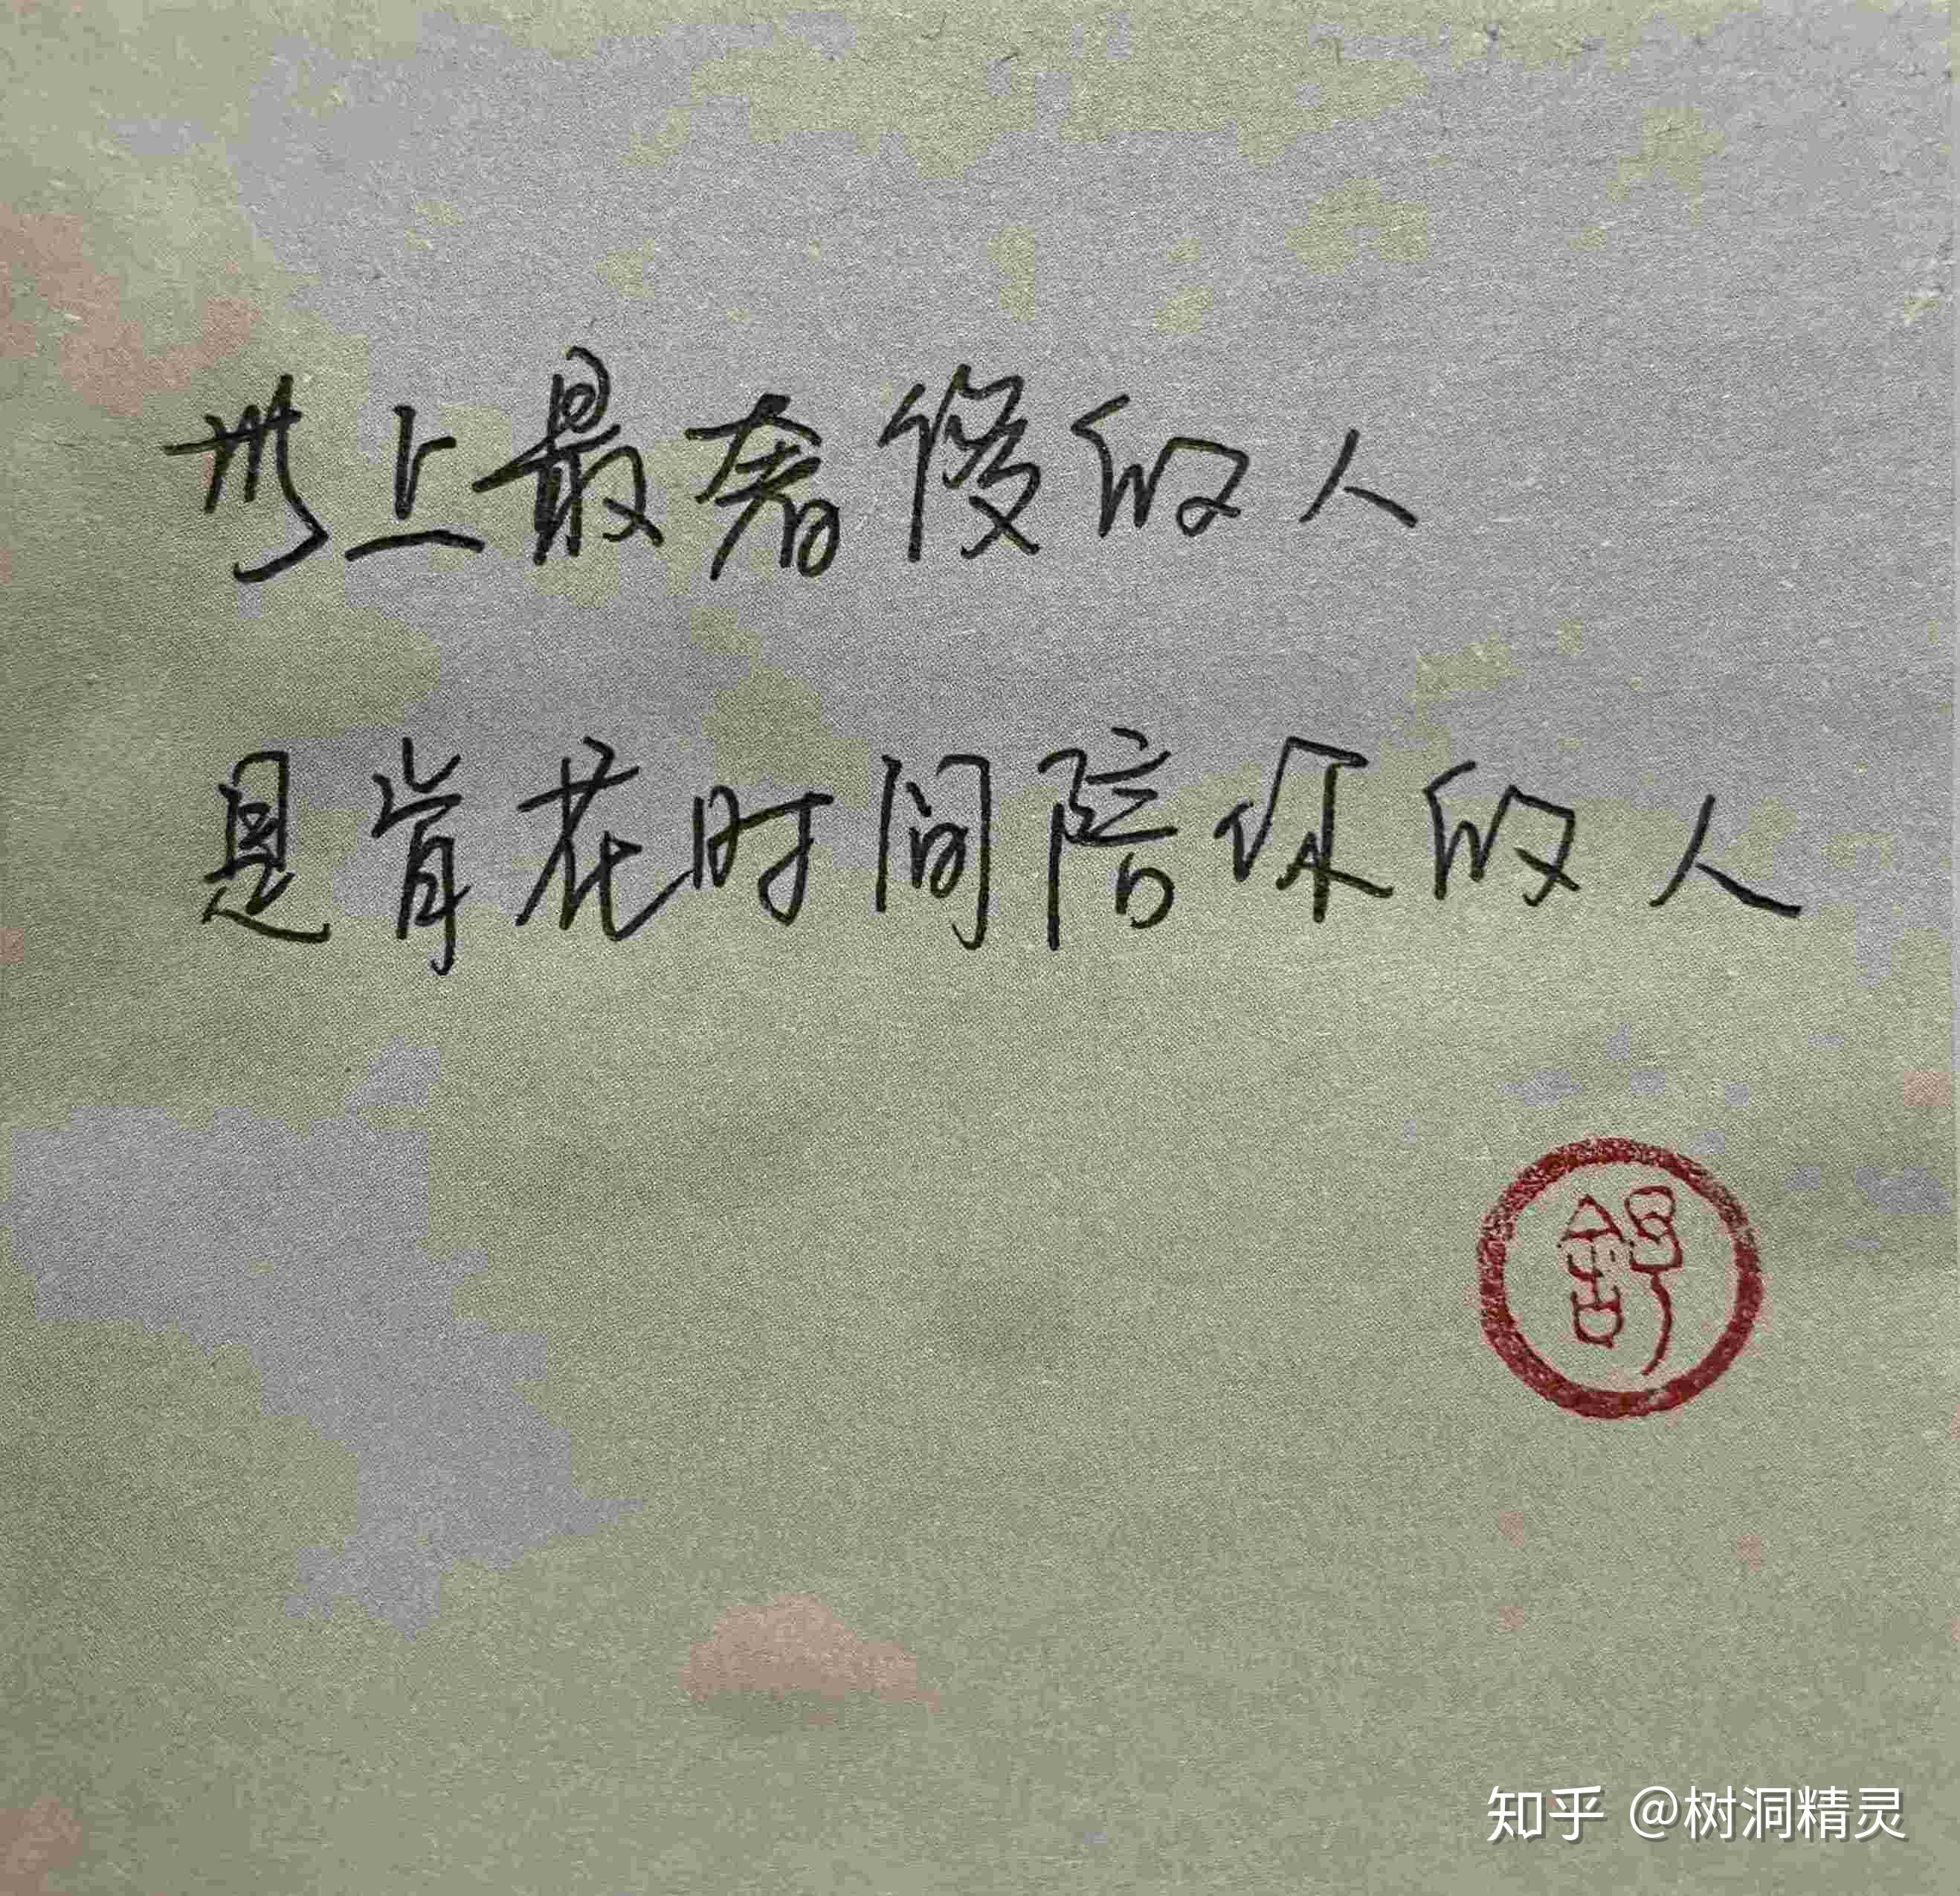 世上最奢侈的人
是肯花时间陪你的人
舒
知乎 @树洞精灵